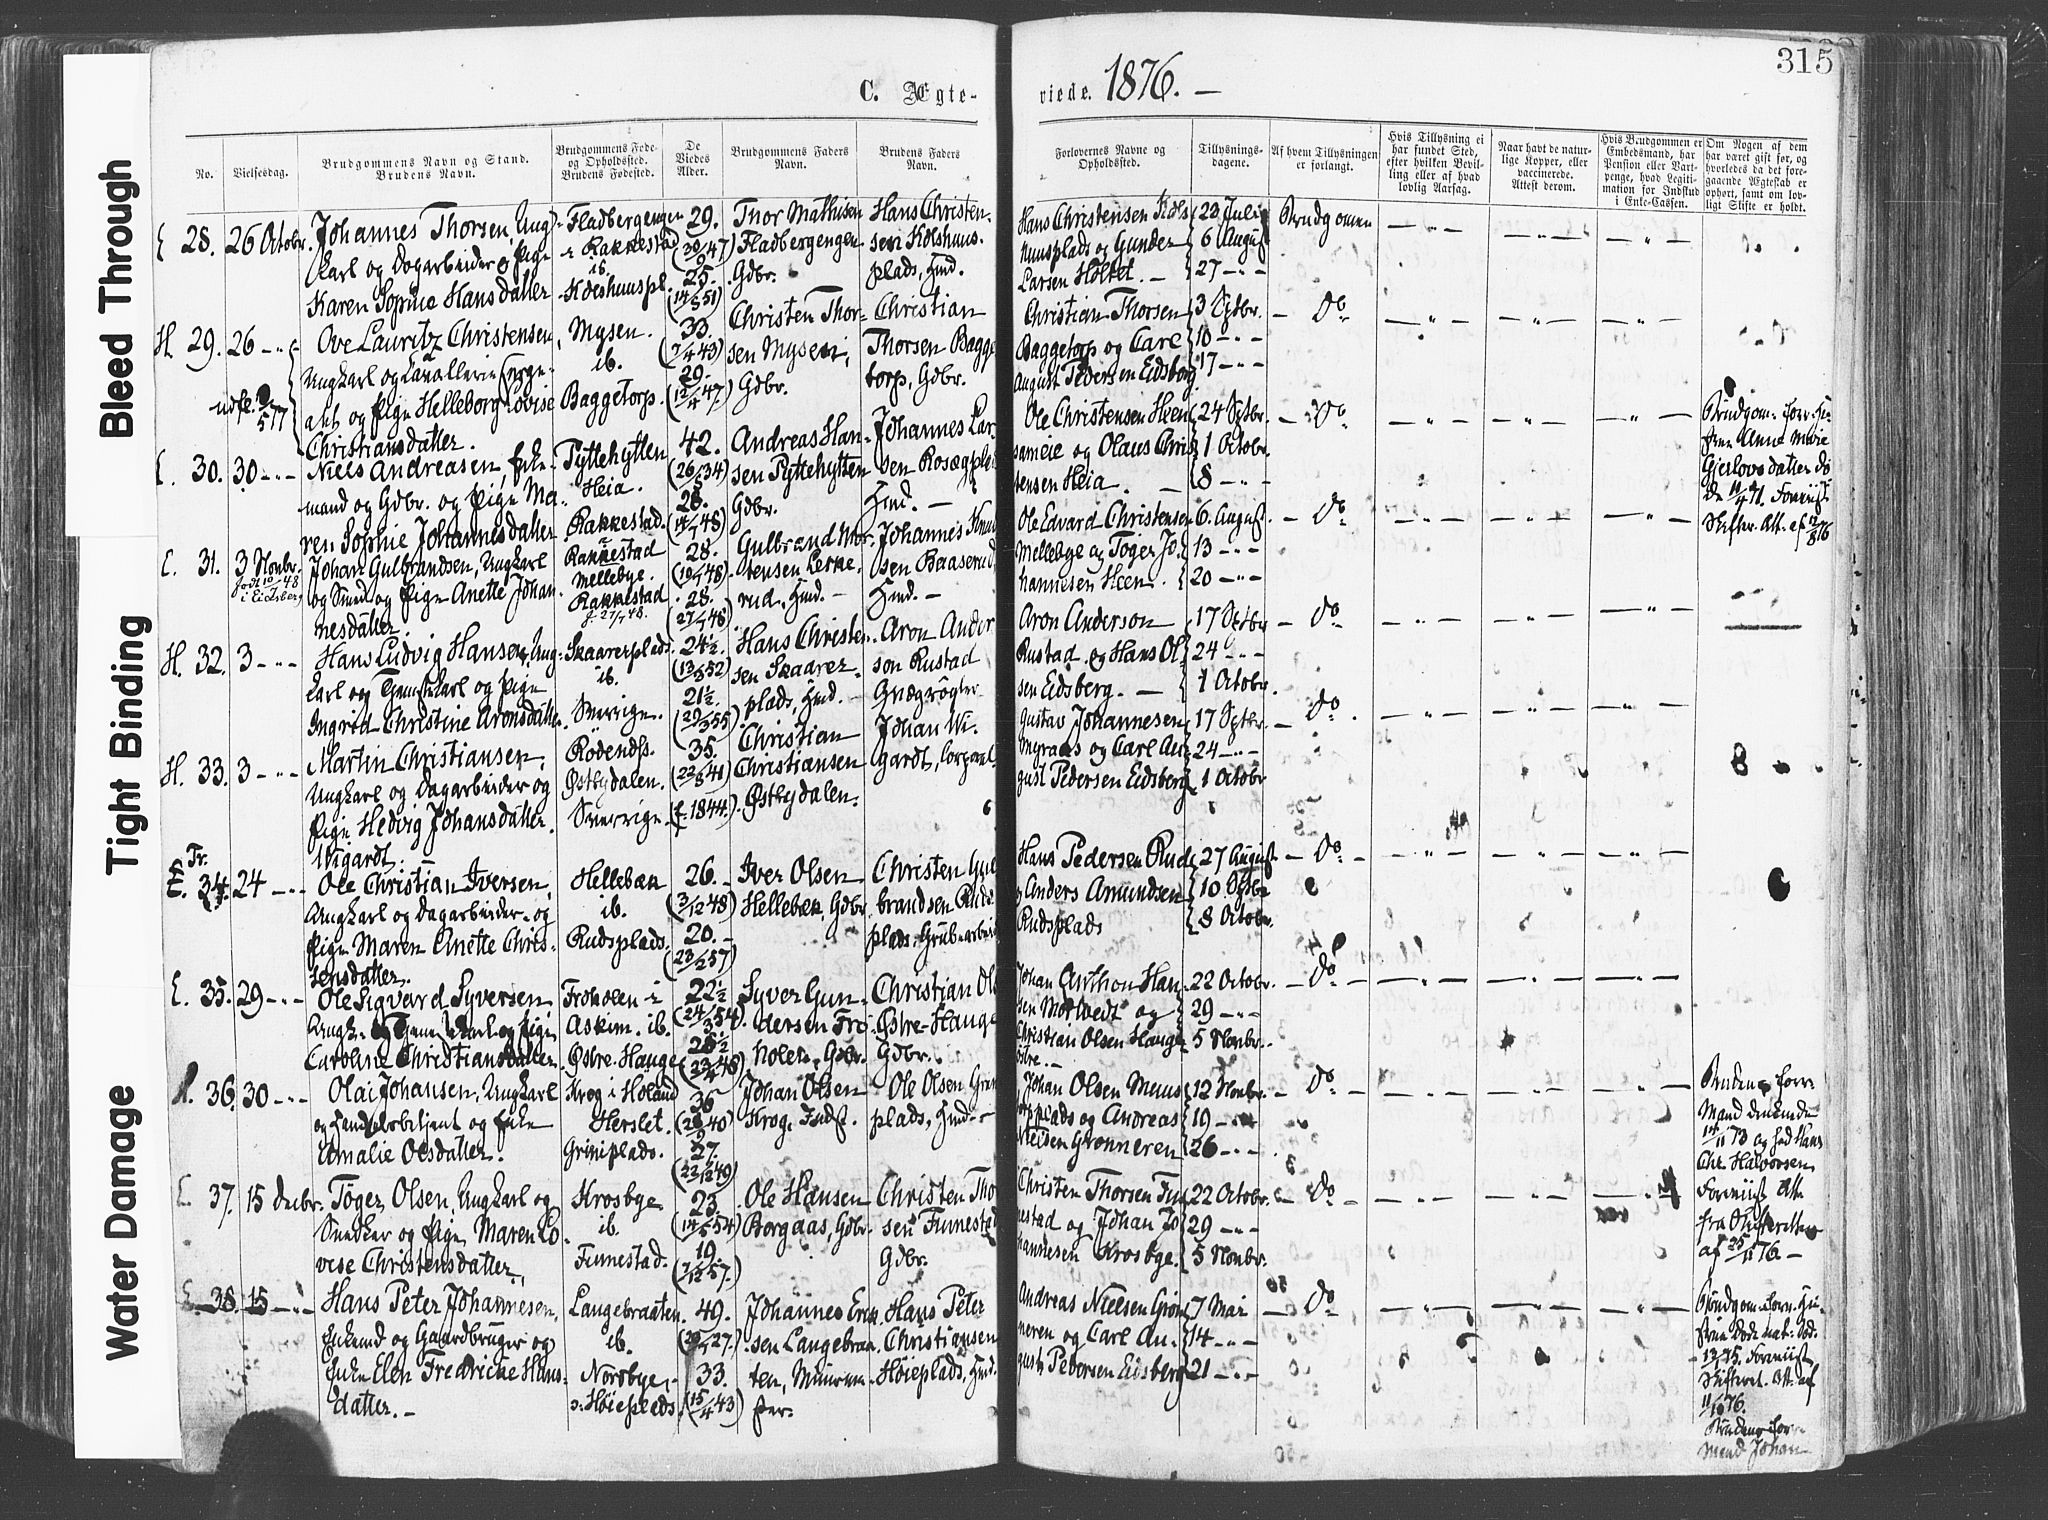 Bleed Through
Tight Binding
Water Damage
315
C. Ægte-
viede. 1876. —
No.
Vielsesdag.
Brudgommens Navn og Stand.
Brudens Navn.
Brudgommens Føde-
og Opholdssted.
Brudens Fødested.
De
Viedes
Alder.
Brudgommens Faders
Navn.
Brudens Faders
Navn.
Forlovernes Navne og
Opholdssted.
Tillysnings-
dagene.
Af hvem Tillysningen
er forlangt.
Hvis Tillysning ei
har fundet Sted,
efter hvilken Bevil-
ling eller af hvad
lovlig Aarsag.
Naar havt de natur-
lige Kopper, eller
vaccinerede.
Attest derom.
Hvis Brudgommen er
Embedsmand, har
Pension eller Vart-
penge, hvad Legiti-
mation for Indskud
i Enke-Cassen.
Om Nogen af dem
har været gift før, og
hvorledes da det fore-
gaaende Ægteskab er
ophørt, samt om lov-
ligt Skifte er holdt.
28. 26 Octobr. Johannes Thorsen, Ung-
karl og Dagarbeider og Pige
Karen Sophie Hansdatter
Fladbergengen
i Rakkestad
ib.
29.
25.
Thor Mathisen
Fladbergengen
Gdbr.
Hans Christen-
sen Kolshuus-
plads, Hmd.
Hans Christensen Kols
huusplads og Gunder
Larsen Holtet. —
23 Juli
6 August
27 - " -
Brudgommen
H. 29. 26 - " - Ove Lauritz Christensen,
Ungkarl og Cavallerie Serge-
ant og Pige Helleborg Lovise
Christiansdatter.
Mysen.
ib.
Baggetorp.
33.
(7/4 43)
29.
(12/4 47)
Christen Thor-
sen Mysen,
Gdbr.
Christian
Thorsen Bagge
torp, Gdbr.
Christian Thorsen
Baggetorp og Carl
August Pedersen Eidsberg
3 Sptbr.
10 - " -
17 - " -
Do
E. 30. 30 - " - Niels Andreasen, Enke-
mand og Gdbr. og Pige Ma-
ren Sophie Johannesdatter
Tyttehytten
Heia.
Rakkestad.
42.
(26/8 34)
28.
(14/1 48)
Andreas Han-
sen Tyttehytten
Gdbr.
Johannes Lar-
sen Rosægplei
Hmd. —
Ole Christensen Heen
sameie og Olaus Chris
tensen Heia. —
24 Sptbr.
1 Octobr.
8 - " -
Do
Brudgom. forr. Hu-
stru Anne Marie
Gjerlovsdatter dø
E. 31. 3 Novbr. Johan Gulbrandsen, Ungkarl
og Smed og Pige Anette Johan-
nesdatter.
Rakkestad
Mellebye.
Rakkestad
28.
(19/1 48)
28.
(27/1 48)
Gulbrand Mor-
tensen Lerke-
rud, Hmd. —
Johannes Knud
sen Baaserud,
Hmd. —
Ole Edvard Christensen
Mellebye og Tøger Jo-
hannesen Heen.
6. August.
13 - " -
20 - " -
Do
H. 32. 3 - " - Hans Ludvig Hansen, Ung-
karl og Tjenstkarl og Pige
Ingrid Christine Aronsdatter
Skaarerplads.
ib.
Sverrige.
24½.
21½.
Hans Christen-
sen Skaarer-
plads, Hmd. —
Aron Ander
son Rustad
Aron Anderson
Rustad. og Hans Ol-
sen Eidsberg. —
17 Sptbr
24 - " -
1 Octobr.
Do
H. 33. 3 - " - Martin Christiansen,
Ungkarl og Dagarbeider og
Pige Hedvig Johansdatter
Wigardt.
Rødenæss.
Østbydalen.
Sverrige.
35.
(f. 1844.)
Christian
Christiansen
Østbydalen.
Johan Wi-
gardt, Corporal
Gustav Johannesen
Myraas og Carl Au-
gust Pedersen Eidsberg
17 Sptbr.
24 - " -
1 Octobr
Do
Tr.
E. 34. 24 - " - Ole Christian Iversen,
Ungkarl og Dagarbeider og
Pige Maren Anette Chris-
tensdatter.
Hellebæk
ib.
Rudsplads.
26.
(3/12 48)
20.
Iver Olsen
Hellebæk, Gdbr.
Christen Gul
brandsen Ruds
plads, Grubearbeid
Hans Pedersen Rud
og Anders Amundsen
Rudsplads
27 August
10. Sptbr
8 Octobr.
Do
E. 35. 29 - " - Ole Sigvard Syversen
Ungk. og Tjenestkarl og Pige
Caroline Christiansdatter.
Froholen i
Askim. ib.
Østre-Hauge
22½
Syver Gun-
dersen Fro-
holen, Gdbr.
Christian Ols
Østre-Hauge
Gdbr.
Johan Anthon Han-
sen Mortvedt og
Christian Olsen Hauge
Østre. —
22 Octobr.
29 - " -
5 Novbr.
Do
36. 30 - " - Olai Johansen, Ungkarl
og Landarbeider og Enke
Amalie Olsdatter.
Krog i Høland
Herslet.
Grineplads.
36
27.
(22/12 49)
Johan Olsen
Krog, Indst.
Ole Olsen Grin
plads, Hmd. —
Johan Olsen Muus
torpplads og Andreas
Nielsen Grønneren
12 Novbr.
19 - " -
26 - " -
Do
Brudens forr.
Mand
14/11 73 og hed Hans
Chr. Halvorsen
Foreviist Att.
fra Skifteretten
af 25/11 76. —
E. 37. 15 Decbr. Tøger Olsen, Ungkarl og
Snedker og Pige Maren Lo-
vise Christensdatter.
Krosbye
ib.
Funnestad.
23.
19.
(7/12 57.)
Ole Hansen
Borgaas, Gdbr.
Christen Tho
sen Funnestad
Gdbr.
Christen Thorsen Fun
nestad og Johan Jo-
hannesen Krosbye.
22 Octobr.
29 - " -
5 Novbr.
Do
E. 38. 15 - " - Hans Peter Johannesen,
Enkemd og Gaardbruger og
Enke Elen Fredrikke Hans-
datter. —
Langebraaten.
ib.
Norsbye,
o: Høieplads.
49.
33.
(15/4 43)
Johannes Erik
sen Langebraa-
ten, Muurme-
ster.
Hans Peter
Christiansen
Høieplads, Hmd.
Andreas Nielsen Grøn
neren og Carl Au-
gust Pedersen Eidsberg
7 Mai
14 - " -
21 - " -
Do
Brudgom. forr. Hu-
Foreviist
Skifteret. Att. af
11/10 76.
Brudens forr.
Mand Johan